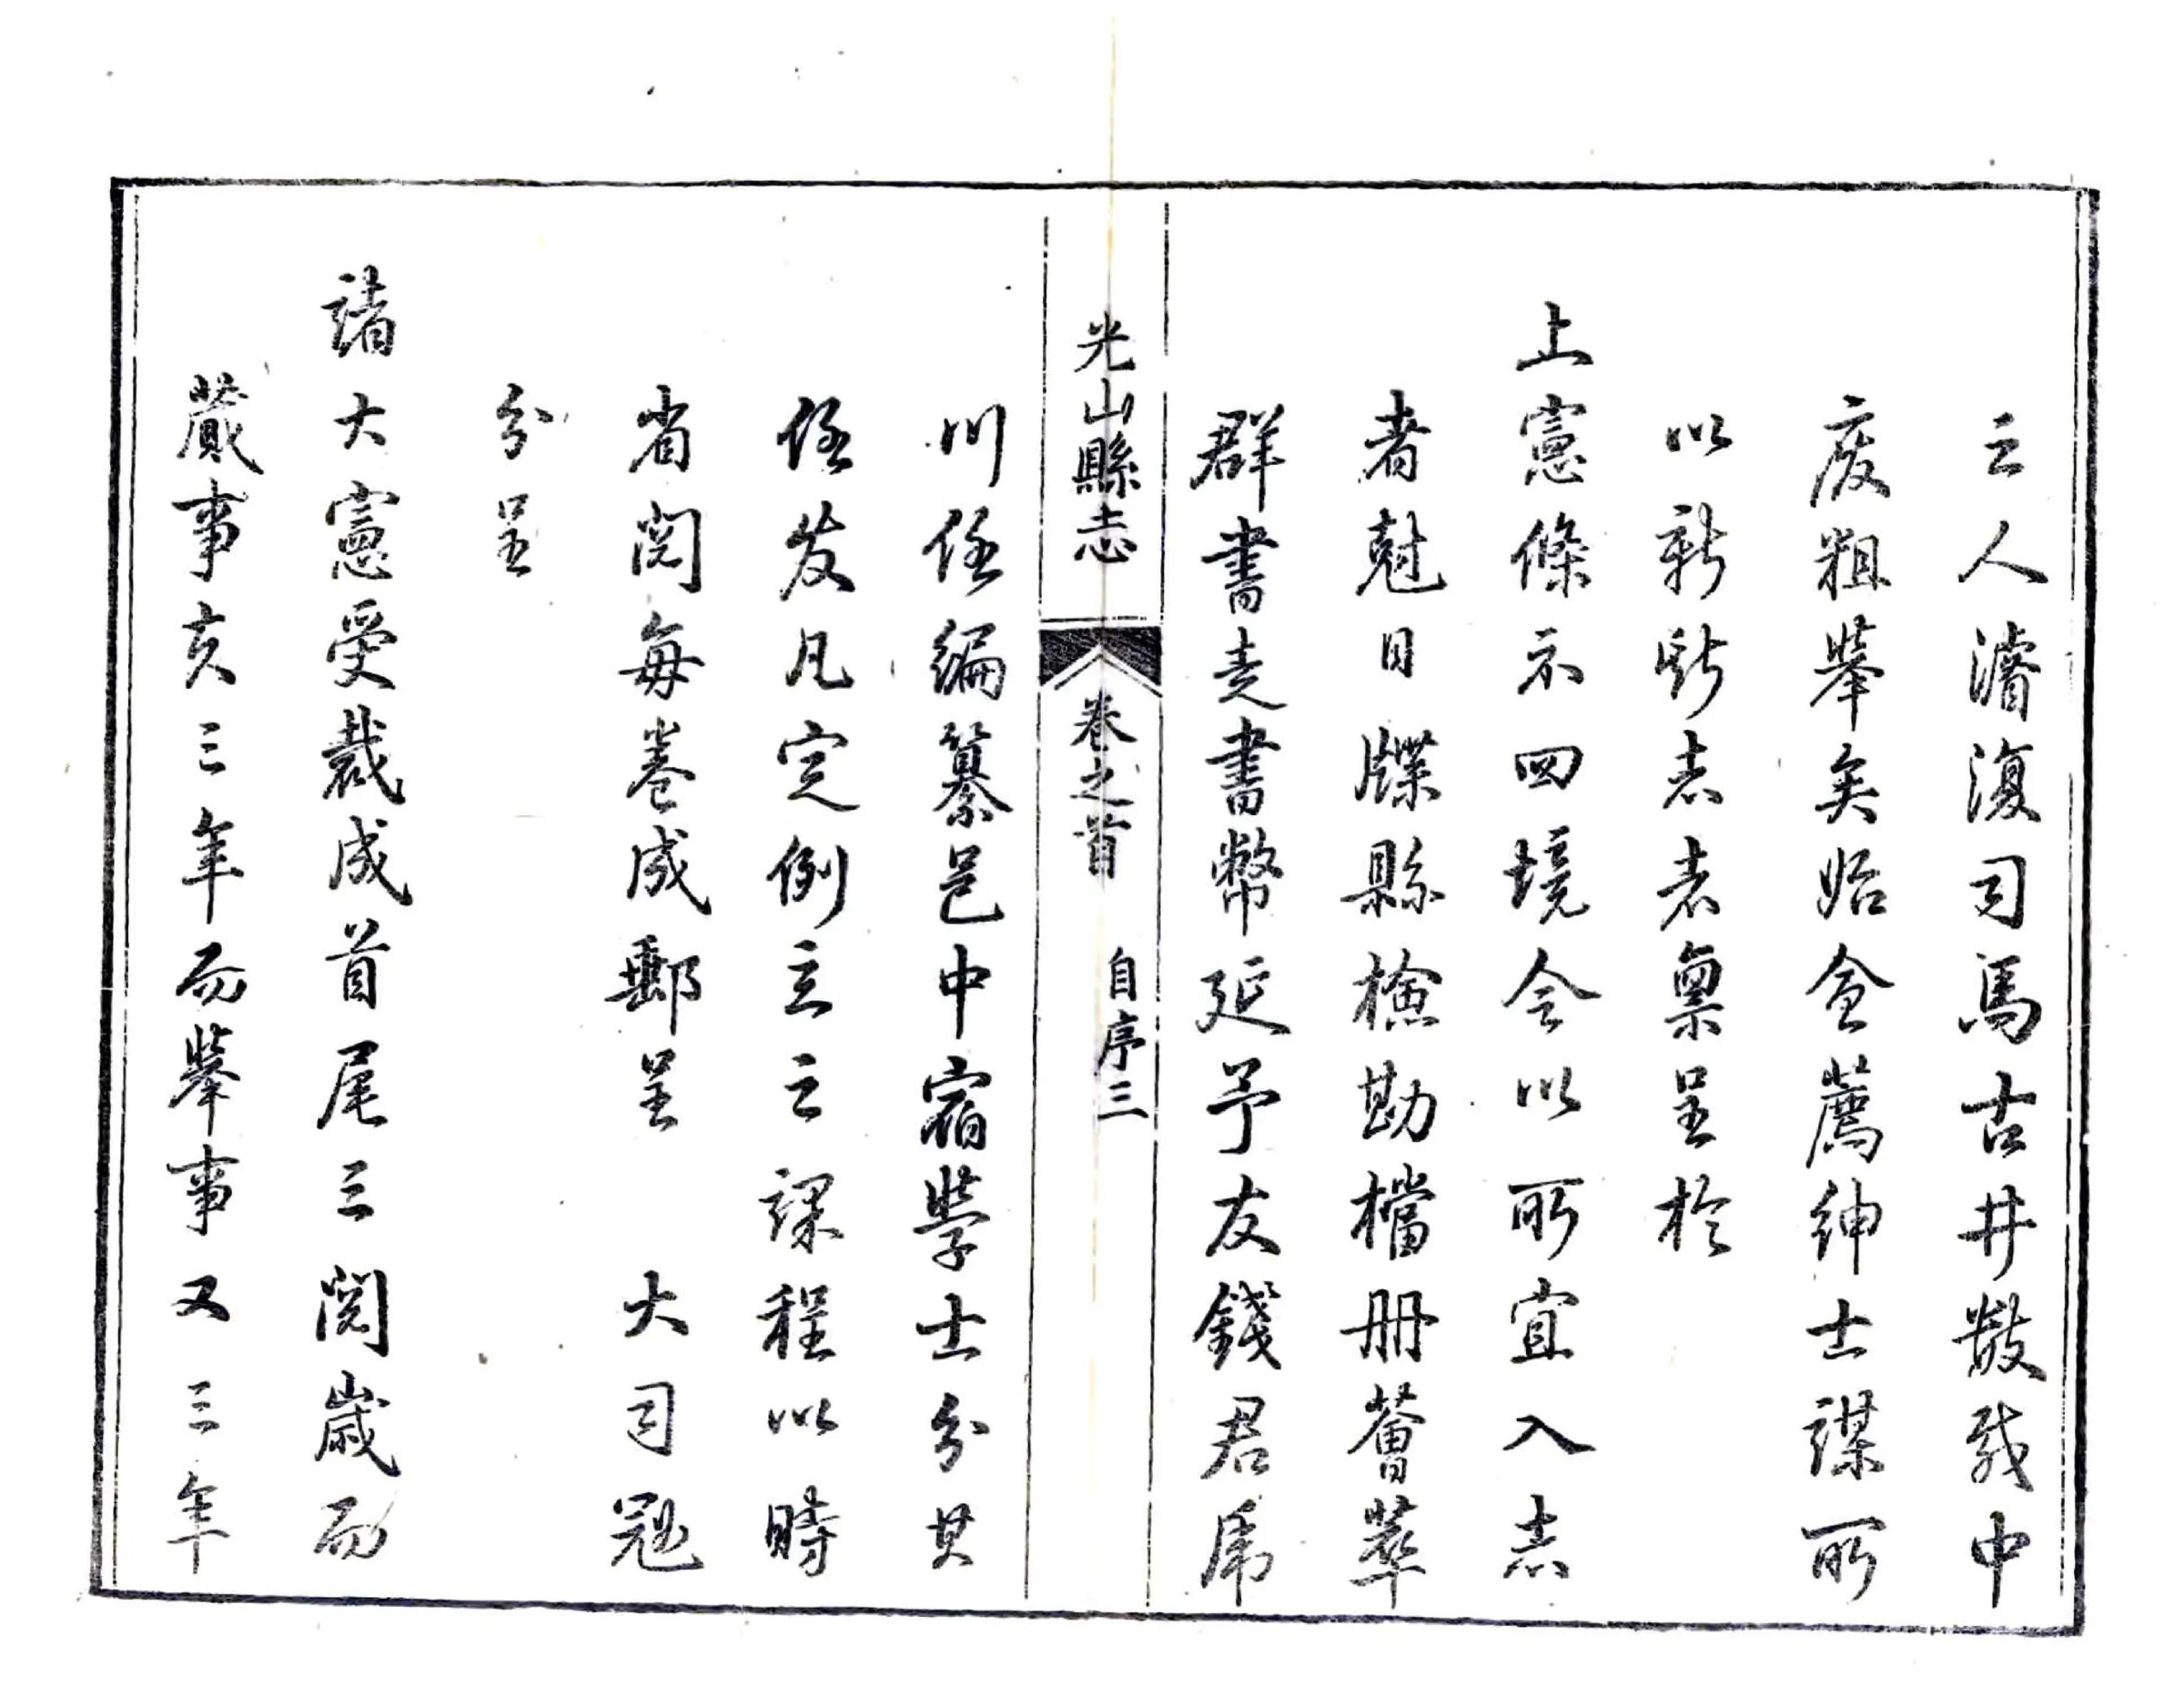 之人濬復司馬古井數載中
廢粗舉矣始僉薦紳士謀所
以新斯志者稟呈於
上憲條示四境令以所宜入志
者尅日牒縣檢勘檔冊薈萃
群書走書幣延予友錢君席
光山縣志 卷之首 自序三
川任編纂邑中宿學士分其
任發凡定例立之課程以時
省閱每卷成郵呈 大司冠
分呈
諸大憲受裁成首尾三閱歲而
蕆事亥三年而舉事又三年